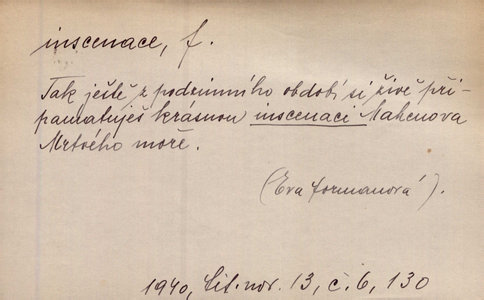 inscenace, f.
Tak ještě z podzimního období si živě při-
pamatuješ krásnou inscenaci Mahenova
Mrtvého moře.
(Eva Formanová).
1940, Lit. nov. 13, č. 6, 130